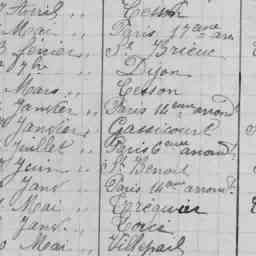 Avril " Cesson
Mai " Paris 17eme arr
février " St Brieuc
7bre " Dijon
Mars " Cesson
Janvier " Paris 14eme arrondt
Janvier " Gassicourt
Juillet " Paris 6eme arrondt
Juin " St Benoit
Janv " Paris 14eme arrondt
Mai " Tréguier
Janv. "
Mai "